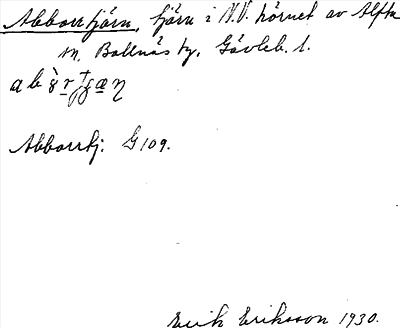 Abborrtjärn, tjärn i N.V. hörnet av Alfta
sn. Bollnäs tg, Gävleb. l.
Abborrtj. G 109.
Erik Eriksson 1930.